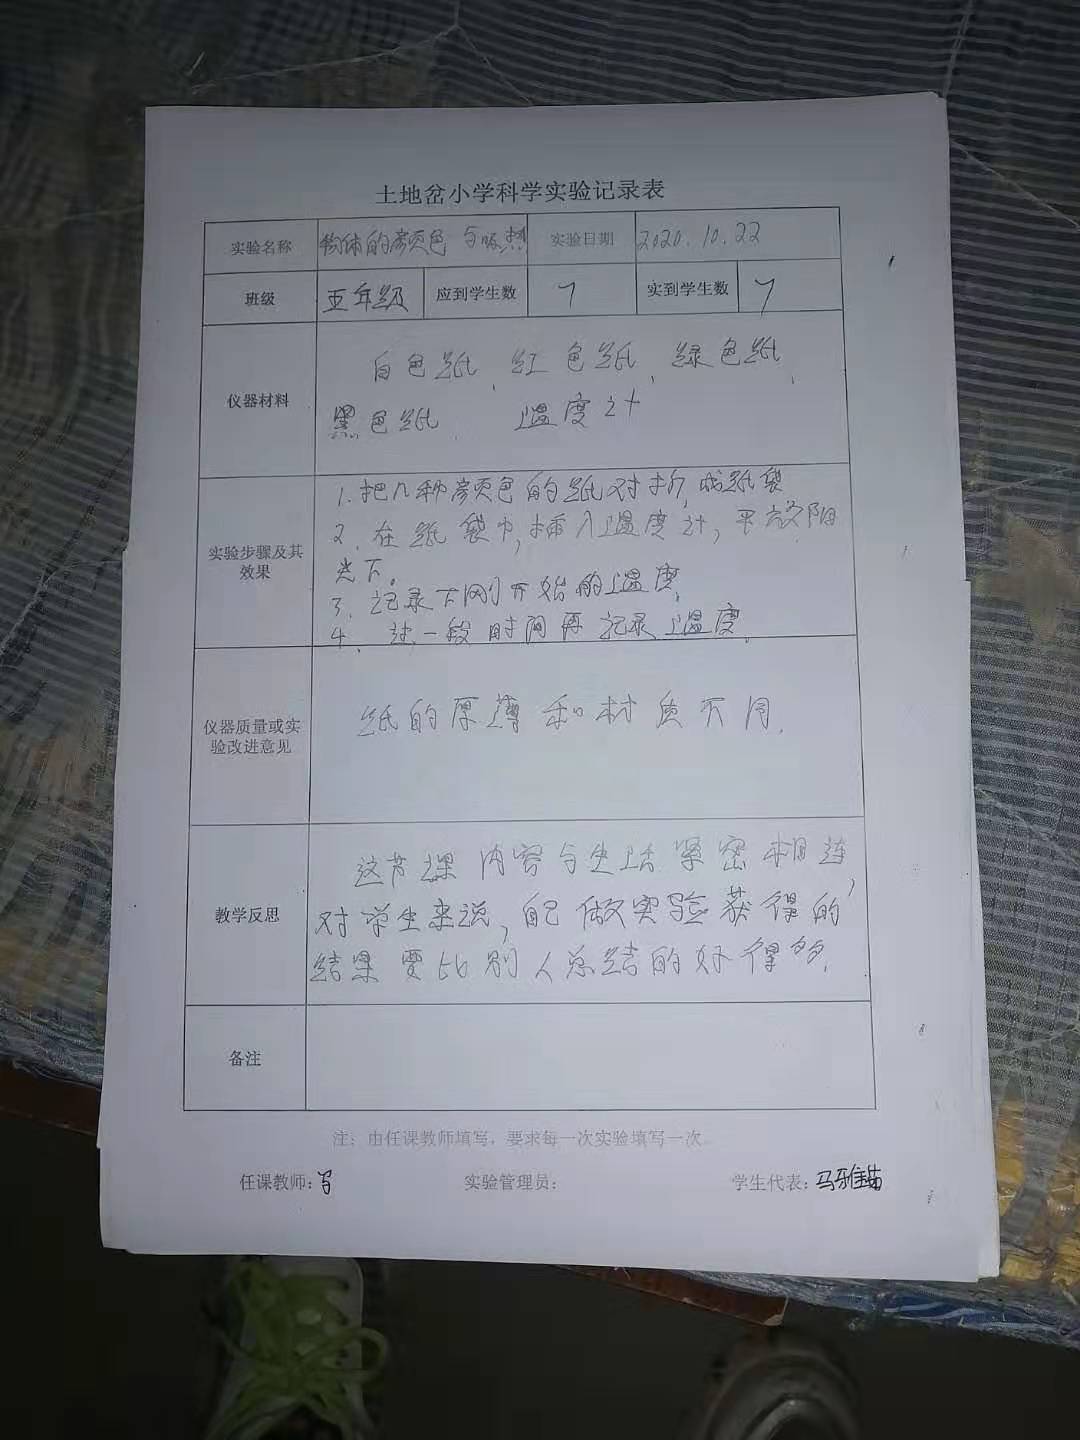 土地岔小学科学实验记录表
实验名称 物体的颜色与吸热 实验日期 2020.10.22
班级 五年级 应到学生数 7 实到学生数 7
仪器材料
白色纸、红色纸、绿色纸、
黑色纸、 温度计
实验步骤及其
效果
1.把几种颜色的纸对折,成纸袋
2.在纸袋中,插入温度计,平放阳
光下。
3.记录下刚开始的温度,
4.过一段时间再记录温度.
仪器质量或实
验改进意见
纸的厚薄和材质不同.
教学反思
这节课内容与生活紧密相连,
对学生来说,自己做实验获得的
结果要比别人总结的好得多.
备注
注：由任课教师填写，要求每一次实验填写一次。
任课教师: 实验管理员: 学生代表: